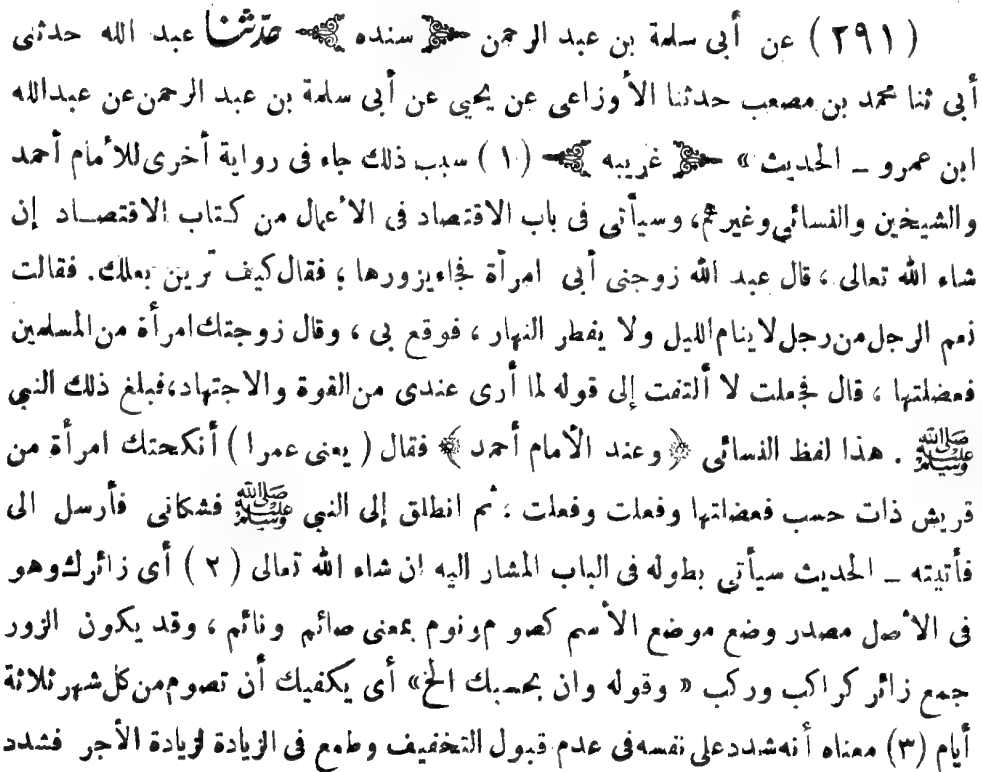 ( ٢٩١ ) عن أبى سلمة بن عبد الرحمن ﴿ سنده ﴾ حدثنا عبد الله حدثنى
أبى ثنا محمد بن مصعب حدثنا الأوزاعى عن يحيى عن أبى سلمة بن عبد الرحمن عن عبدالله
ابن عمرو ــ الحديث » ﴿ غريبه ﴾ ( ١ ) سبب ذلك جاء فى رواية أخرى للأمام أحمد
والشيخين والنسائي وغيرهم، وسيأتى فى باب الاقتصاد فى الأعمال من كتاب الاقتصاد إن
شاء الله تعالى ، قال عبد الله زوجنى أبى امرأة فجاء يزورها ؛ فقال كيف ترين بعلك. فقالت
نعم الرجل من رجل لا ينام الليل ولا يفطر النهار ، فوقع بى ، وقال زوجتك امرأة من المسلمين
فعضلتها ، قال فجعلت لا ألتفت إلى قوله لما أرى عندى من القوة والاجتهاد، فبلغ ذلك النبي
ﷺ . هذا لفظ النسائى ﴿ وعند الأمام أحمد ﴾ فقال ( يعنى عمرا ) أنكحتك امرأة من
قريش ذات حسب فعضلتها وفعلت وفعلت ؛ ثم انطلق إلى النبي ﷺ فشكانى فأرسل الى
فأتيته ــ الحديث سيأتي بطوله فى الباب المشار اليه إن شاء الله تعالى ( ٢ ) أى زائرك وهو
فى الأصل مصدر وضع موضع الأسم كصوم ونوم بمعنى صائم ونائم ، وقد يكون الزور
جمع زائر كراكب وركب « وقوله وان بحسبك الخ» أى يكفيك أن تصوم من كل شهر ثلاثة
أيام (٣) معناه أنه شدد على نفسه فى عدم قبول التخفيف وطمع فى الزيادة لزيادة الأجر فشدد